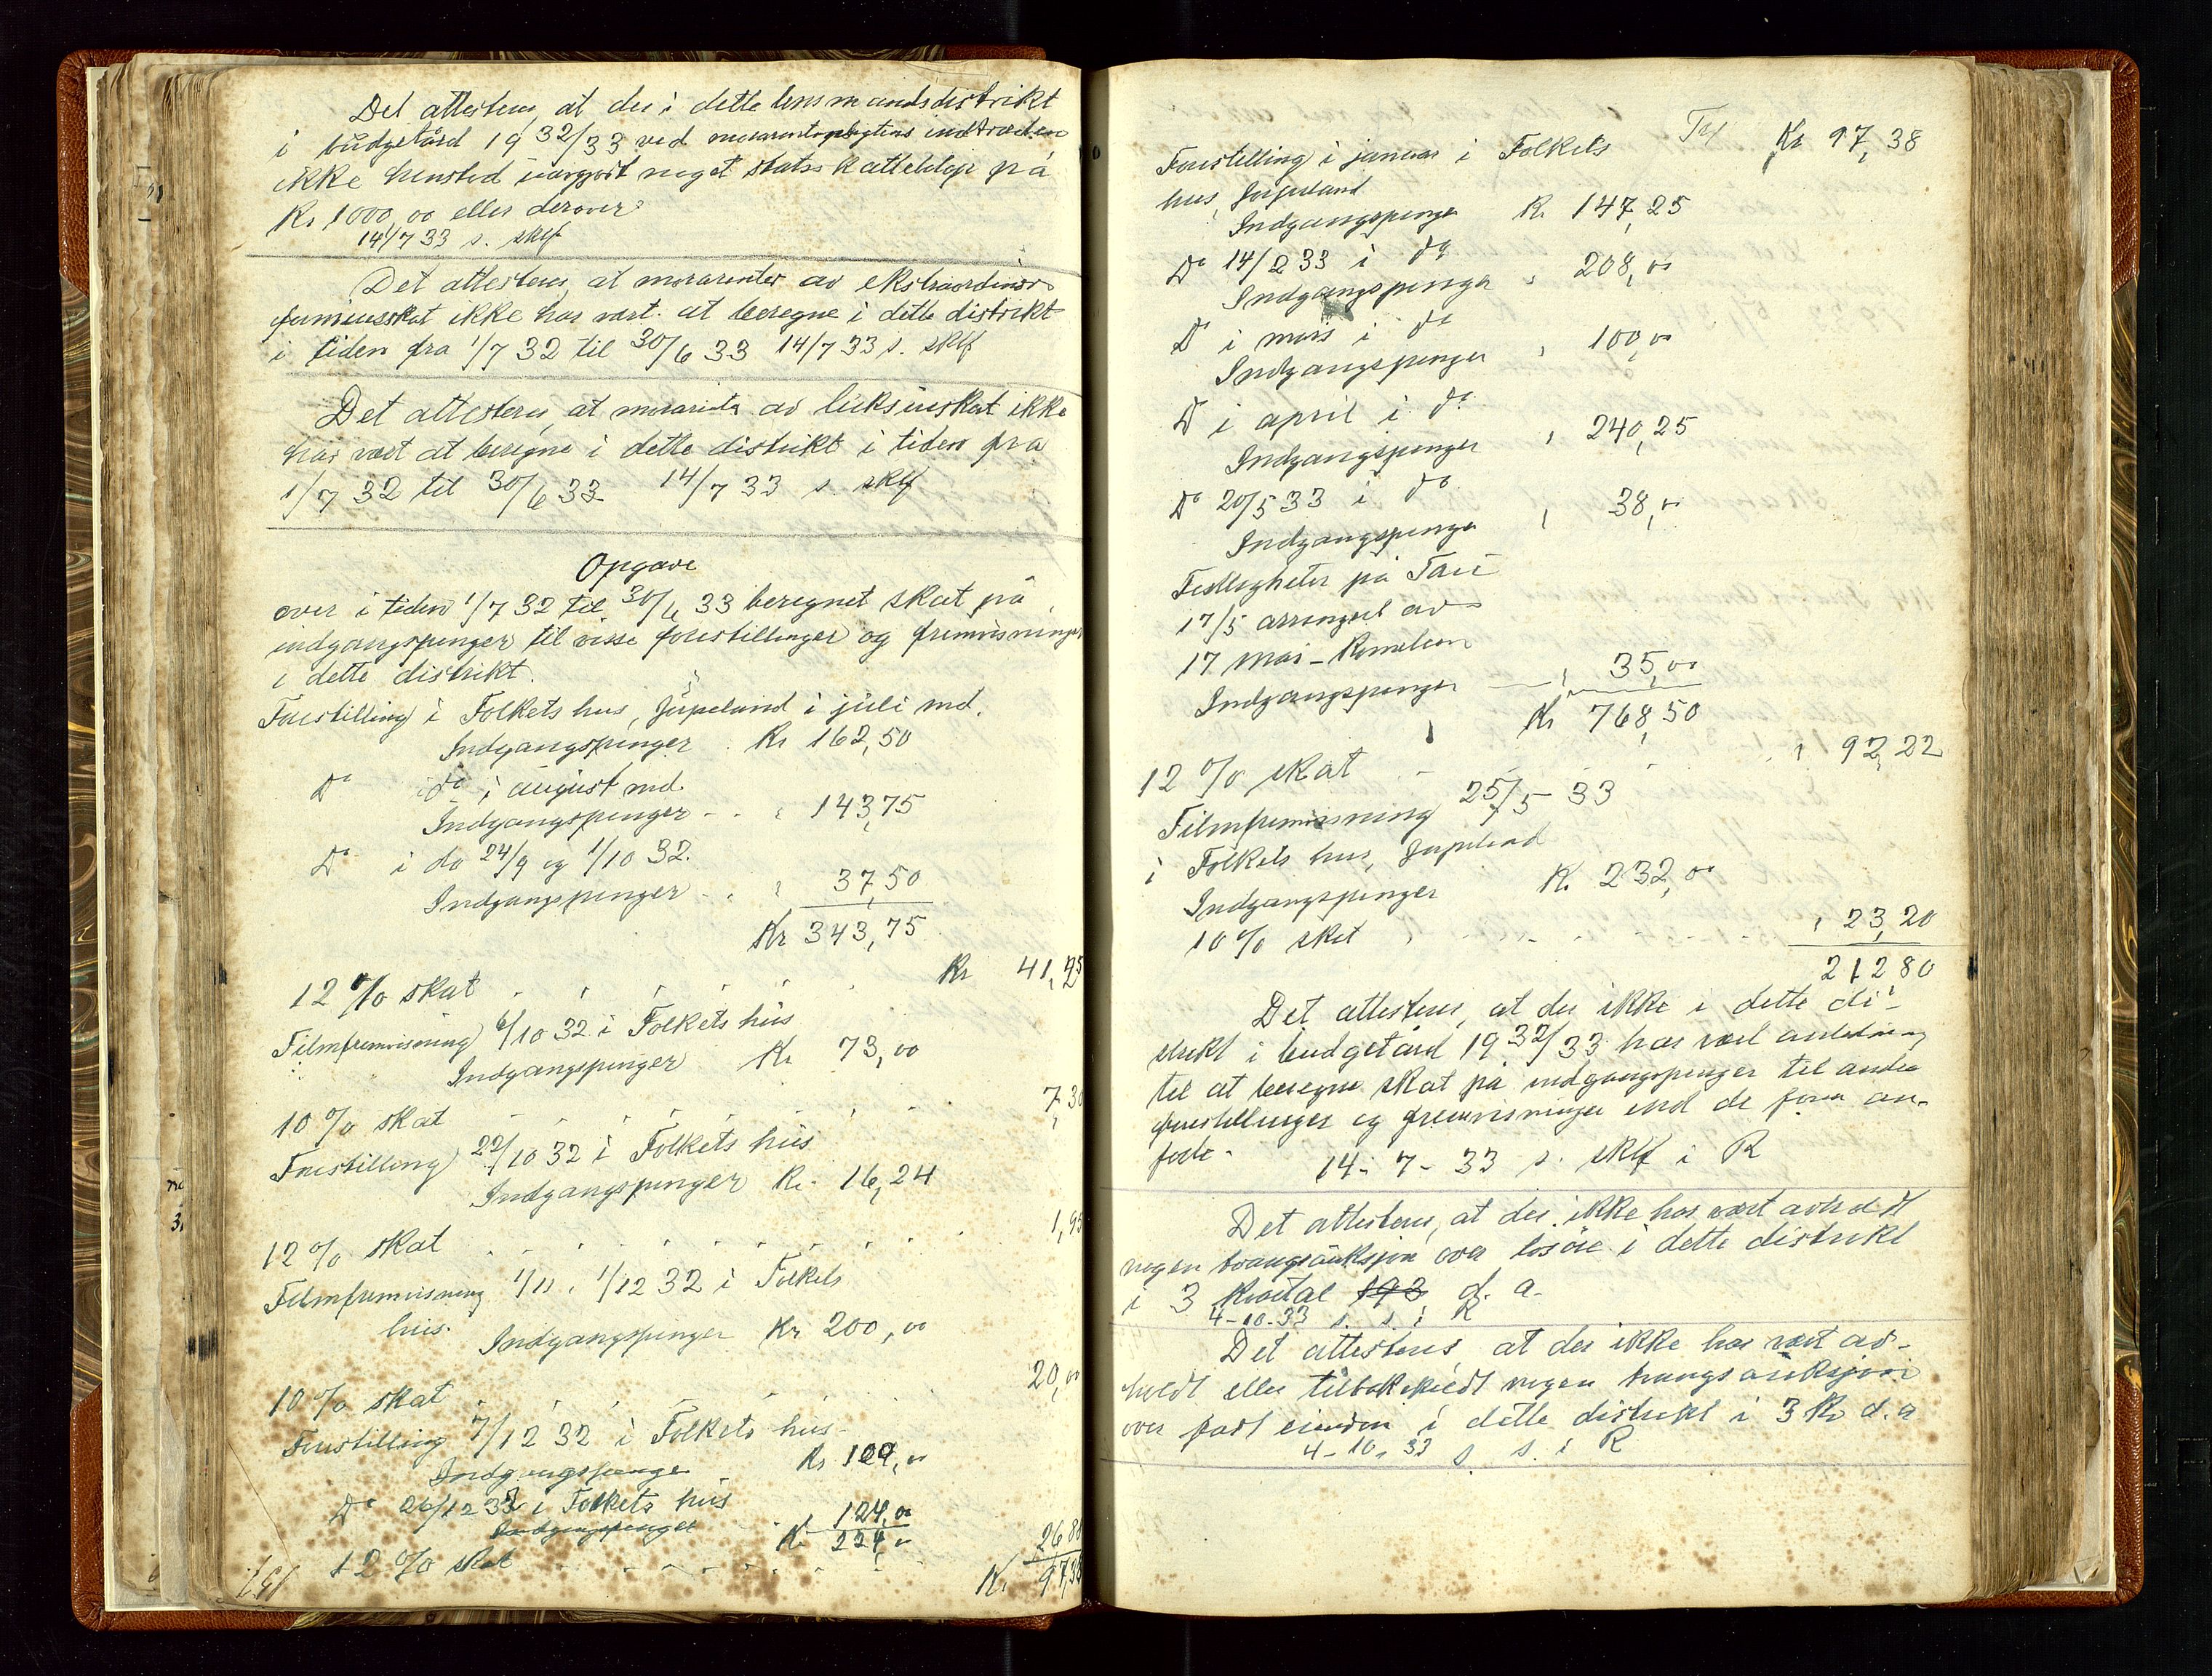 Det attesteres, at der i dette lensmandsdistrikt
i budgetåret 1932/33 ved morarentepligtens indtræden
ikke henstod uavgjort noget statsskattebeløp på
Kr 1000,00 eller derover
14/7 33 s. sklf
Det attesteres, at morarenter av ekstraordinær
formuesskat ikke har vært at beregne i dette distrikt
i tiden fra 1/7 32 til 30/6 33 14/7 33 s. sklf
Det attesteres, at morarenter av luksusskat ikke
har vært at beregne i dette distrikt i tiden fra
1/7 32 til 30/6 33 14/7 33 s. sklf
Opgave
over i tiden 1/7 32 til 30/6 33 beregnet skat på
indgangspenger til visse forestillinger og fremvisninger
i dette distrikt.
Forestilling i Folkets hus, Jørpeland i juli md.
Indgangspenger Kr 162,50
Do do i august md.
Indgangspenger - - " 143,75
Do i do 24/9 og 1/10 32.
Indgangspenger - " 37,50
Kr 343,75
12 % skat Kr 41,25
Filmfremvisning 6/10 32 i Folkets hus
Indgangspenger Kr 73,00
10 % skat 7,30
Forestilling 22/10 32 i Folkets hus
Indgangspenger Kr. 16,24
12 % skat 1,95
Filmfremvisning 1/11, 1/12 32 i Folkets
hus. Indgangspenger Kr 200,00
10 % skat 20,00
Forestilling 7/12 32 i Folkets hus
Indgangspenger Kr 100,00
Do 26/12 32 i Folkets hus 124,00
Indgangspenger Kr 224,00
12 % skat 26,88
Kr 97,38
Tr Kr 97,38
Forestilling i januar i Folkets
hus Jørpeland
Indgangspenger Kr 147,25
Do 14/2 33 i do
Indgangspenger " 208,00
Do i mars i do
Indgangspenger " 100,00
Do i april i do
Indgangspenger " 240,25
Do 20/5 33 i do
Indgangspenger " 38,00
Festligheter på Tau
17/5 arrangert av
17 mai-Komiteen
Indgangspenger — " 35,00
Kr 768,50
12 % skat " 92,22
Filmfremvisning 25/5 33
i Folkets hus, Jørpeland
Indgangspenger Kr 232,00
10 % skat " 23,20
212 80
Det attesteres, at der ikke i dette di-
strikt i budgetåret 1932/33 har vært anledning
til at beregne skat på indgangspenger til andre
forestillinger og fremvisninger end de foran an-
førte.
14-7-33 s. sklf i R
Det attesteres, at der ikke har vært avholdt
nogen tvangsauksjon over løsøre i dette distrikt
i 3 kvartal 193 d. a.
4-10-33 s. s. i R
Det attesteres at der ikke har vært av-
holdt eller tilbakekaldt nogen tvangsauksjon
over fast eiendom i dette distrikt i 3 Kv d. a
4-10-33 s. s. i R